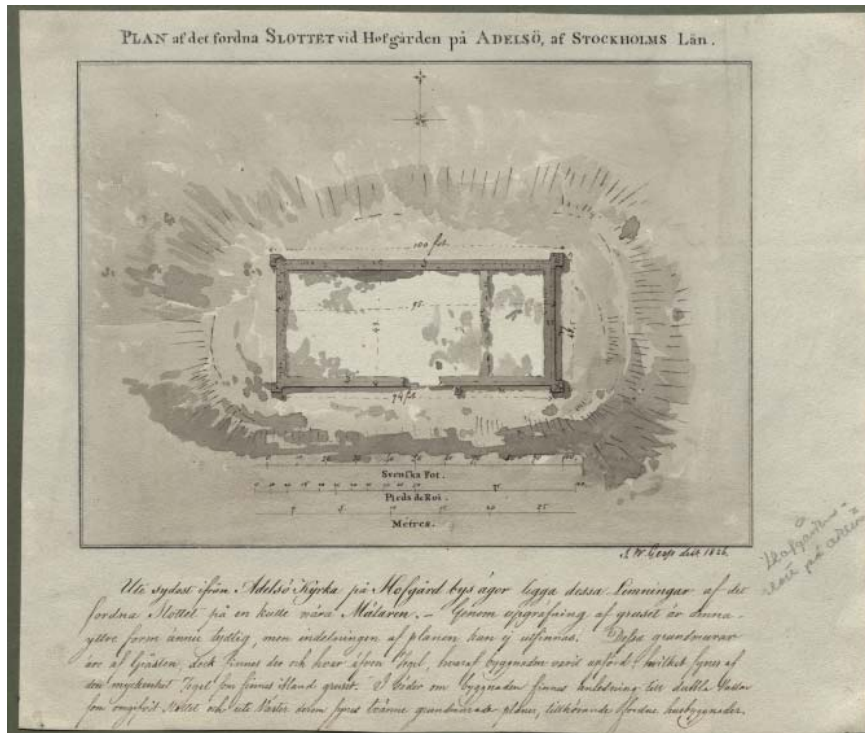 PLAN af det fordna SLOTTET vid Hofgården på ADELSÖ, af STOCKHOLMS Län.
100 fot.
95.
94 fot
Svenska Fot.
Pieds de Roi.
Métres.
delt 1826.
Hofgården
slott på Adelsö
Ute sydost ifrån Adelsö Kyrka på Hofgård bys ägor ligga dessa Lemningar af det
fordna Slottet på en kulle nära Mälaren. – Genom upgräfning af gruset är denna
yttre form ännu tydlig, men indelningen af planen kan ej utfinnas. Dessa grundmurar
äro af Gråsten, dock finnes der och hvar äfven Tegel, hvaraf byggnaden varit upförd, hvilket synes af
den myckenhet Tegel som finnes ibland gruset. I söder om byggnaden finnes anledning till dubbla Vallar
som omgifvit Slottet och ute Väster derom synes tvänne grundmurade planer, tillhörande fordna husbyggnader.